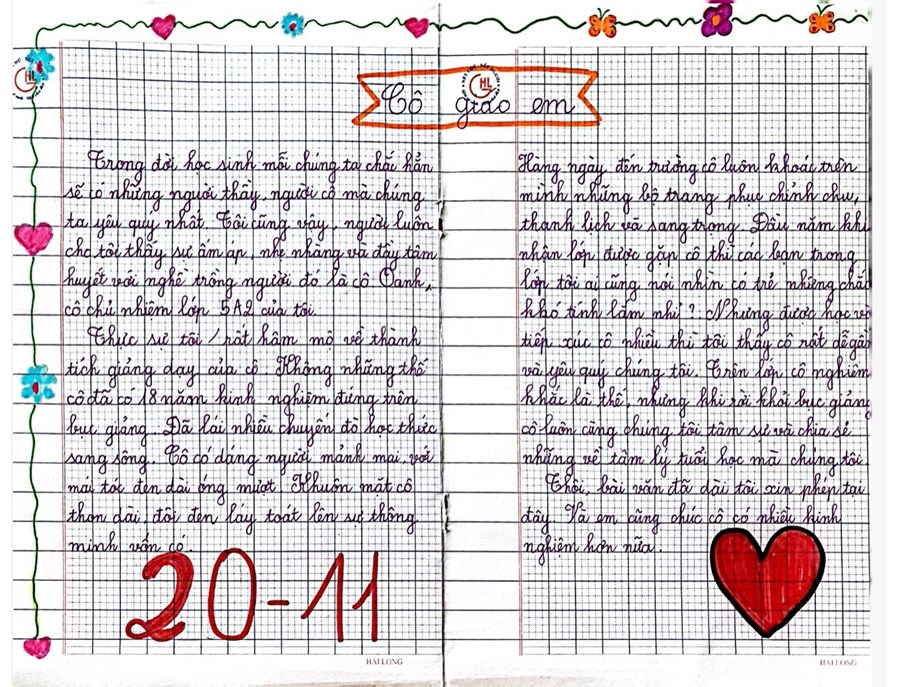 Cô giáo em
Trong đời học sinh mỗi chúng ta chắc hẳn
sẽ có những người thầy, người cô mà chúng
ta yêu quý nhất. Tôi cũng vậy, người luôn
cho tôi thấy sự ấm áp, nhẹ nhàng và đầy tâm
huyết với nghề trồng người đó là cô Oanh,
cô chủ nhiệm lớp 5A2 của tôi.
Thực sự tôi rất hâm mộ về thành
tích giảng dạy của cô Không những thế
cô đã có 18 năm kinh nghiệm đứng trên
bục giảng. Đã lái nhiều chuyến đò học thức
sang sông. Cô có dáng người mảnh mai, với
mái tóc đen dài óng mượt Khuôn mặt cô
thon dài, đôi đen láy toát lên sự thông
minh vốn có.
20-11
HẢI LONG
Hàng ngày đến trường cô luôn khoác trên
mình những bộ trang phục chỉnh chu,
thanh lịch và sang trọng. Đầu năm khi
nhận lớp được gặp cô thì các bạn trong
lớp tôi ai cũng nói nhìn cô trẻ nhưng chắc
khó tính lắm nhỉ? Nhưng được học và
tiếp xúc cô nhiều thì tôi thấy cô rất dễ gần
và yêu quý chúng tôi. Trên lớp cô nghiêm
khắc là thế, nhưng khi rời khỏi bục giảng
cô luôn cùng chúng tôi tâm sự và chia sẻ
những về tâm lý tuổi học mà chúng tôi.
Thôi, bài văn đã dài tôi xin phép tại
đây Và em cũng chúc cô có nhiều kinh
nghiệm hơn nữa.
HẢI LONG